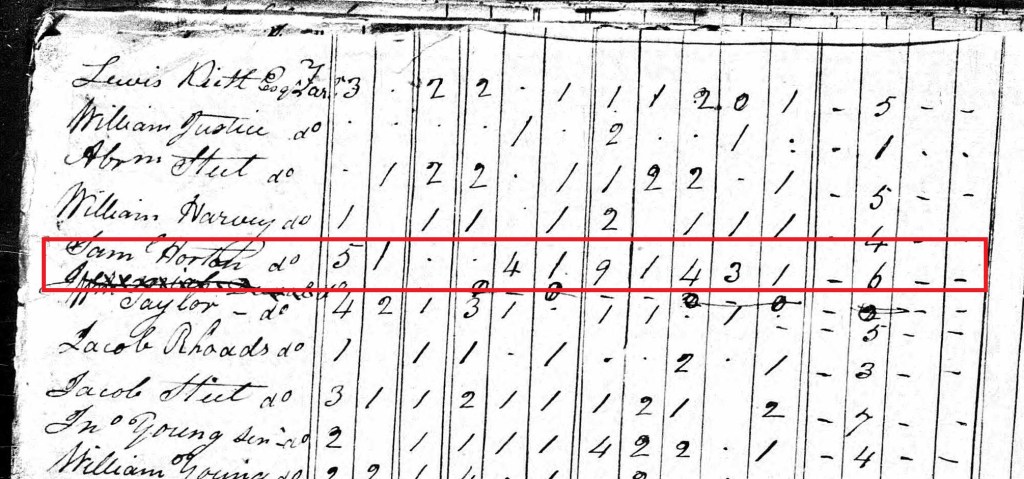 Lewis Keitt Esqr 3 . 2 2 . 1 1 1 2 0 1 - 5 - -
William Justice do . . . . 1 . 2 . . 1 . : - 1 . .
Abrm Steet do . 1 2 2 . 1 1 2 2 . 1 - 5 - -
William Harvey do 1 1 1 . 1 2 1 1 1 - 4 - -
Saml Horton do 5 1 . . 4 1 9 1 4 3 1 - 6 - -
Wm Taylor - do 4 2 1 3 1 . 1 1 . 1 . - 5 - -
Jacob Rhoads do 1 1 1 . 1 . . 2 . 1 - 3 - -
Jacob Steet do 3 1 1 2 1 1 1 2 1 2 - 7 - -
Jno Young senr do 2 1 1 1 1 4 2 2 . 1 - 4 - -
William Young do 2 2 1